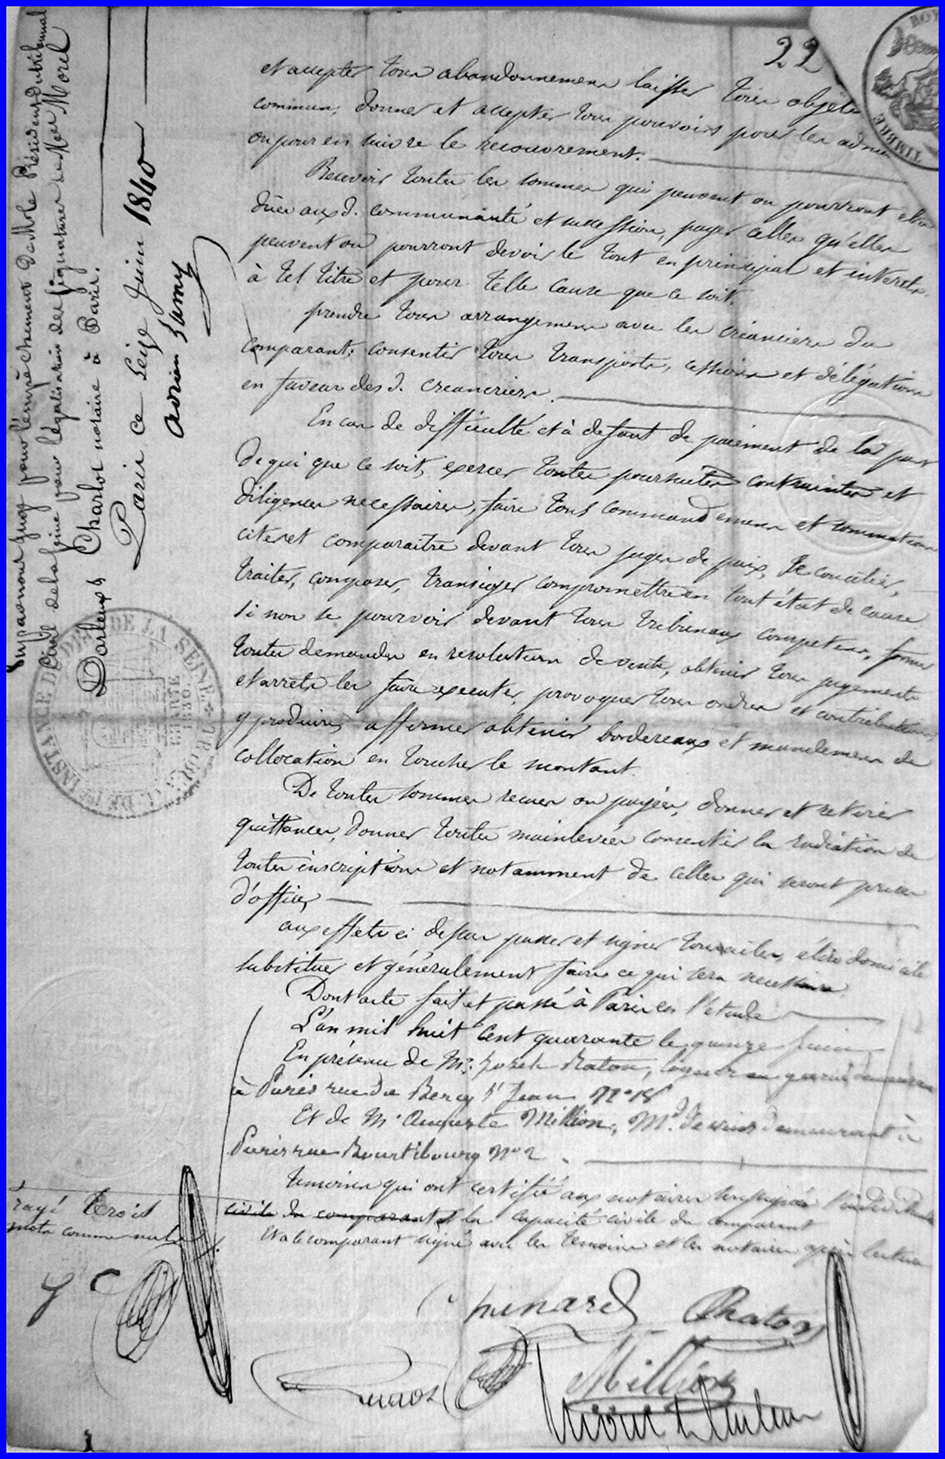 22
et accepter tous abandonnemens laisser tous objets
commun, donner et accepter tous pouvoirs pour les
ou pour en suivre le recouvrement.
Recevoir toutes les sommes qui peuvent ou pourront etre
dües aux d. communauté et succession, payer celles qu'elles
peuvent ou pourront devoir le tout en principal et interets
à tel titre et pour telle cause que ce soit.
prendre tous arrangemens avec les créanciers du
comparant; consentir tous transports, cessions et délégations
en faveur des d. creanciers.
En cas de difficulté et à defaut de paiement de la part
de qui que ce soit, exercer toutes poursuites contraintes et
diligences necessaires, faire tous commandemens et sommations
citer et comparaitre devant tous juges de paix, se concilier,
traiter, composer, transiger compromettre en tout état de cause
si non se pourvoir devant tous tribunaux compétens, former
toutes demandes en resolution de vente, obtenir tous jugements
et arrets les faire executer, provoquer tous ordres et contributions
y produire, affirmer obtenir bordereaux et mandemens de
collocation en toucher le montant.
De toutes sommes recues ou payées, donner et retirer
quittances, donner toutes mainlevées consentir la radiation de
toutes inscriptions et notamment de celles qui seront prises
d'office,
aux effets ci dessus passer et signer tous actes, élire domicile
substituer et généralement faire ce qui sera necessaire
Dont acte fait et passé à Paris en l'étude
L'an mil huit cent quarante le quinze juin
En présence de Mr. Joseph Raton,
à Paris rue de Bercy St Jean No 18
Et de Mr Auguste Million, Md. de vins demeurant à
Paris rue Bourtibourg No 2.
Temoins qui ont certifié aux notaires soussignés
civile du comparant et la capacité civile du comparant
Et a le comparant signé avec les temoins et les notaires après lecture
rayé trois
mots comme nuls
Chinard Raton
Million
Vu par nous juge pour l'empêchement de M. le Président du tribunal
Civil de la Seine pour légalisation des signatures de Mes Morel
Darleux & Charlot notaires à Paris.
Paris ce seize Juin 1840
Adrien Lamy
TRIBUNAL DE 1RE INSTANCE DU DEPT DE LA SEINE
CHARTE
DE 1830
TIMBRE ROY